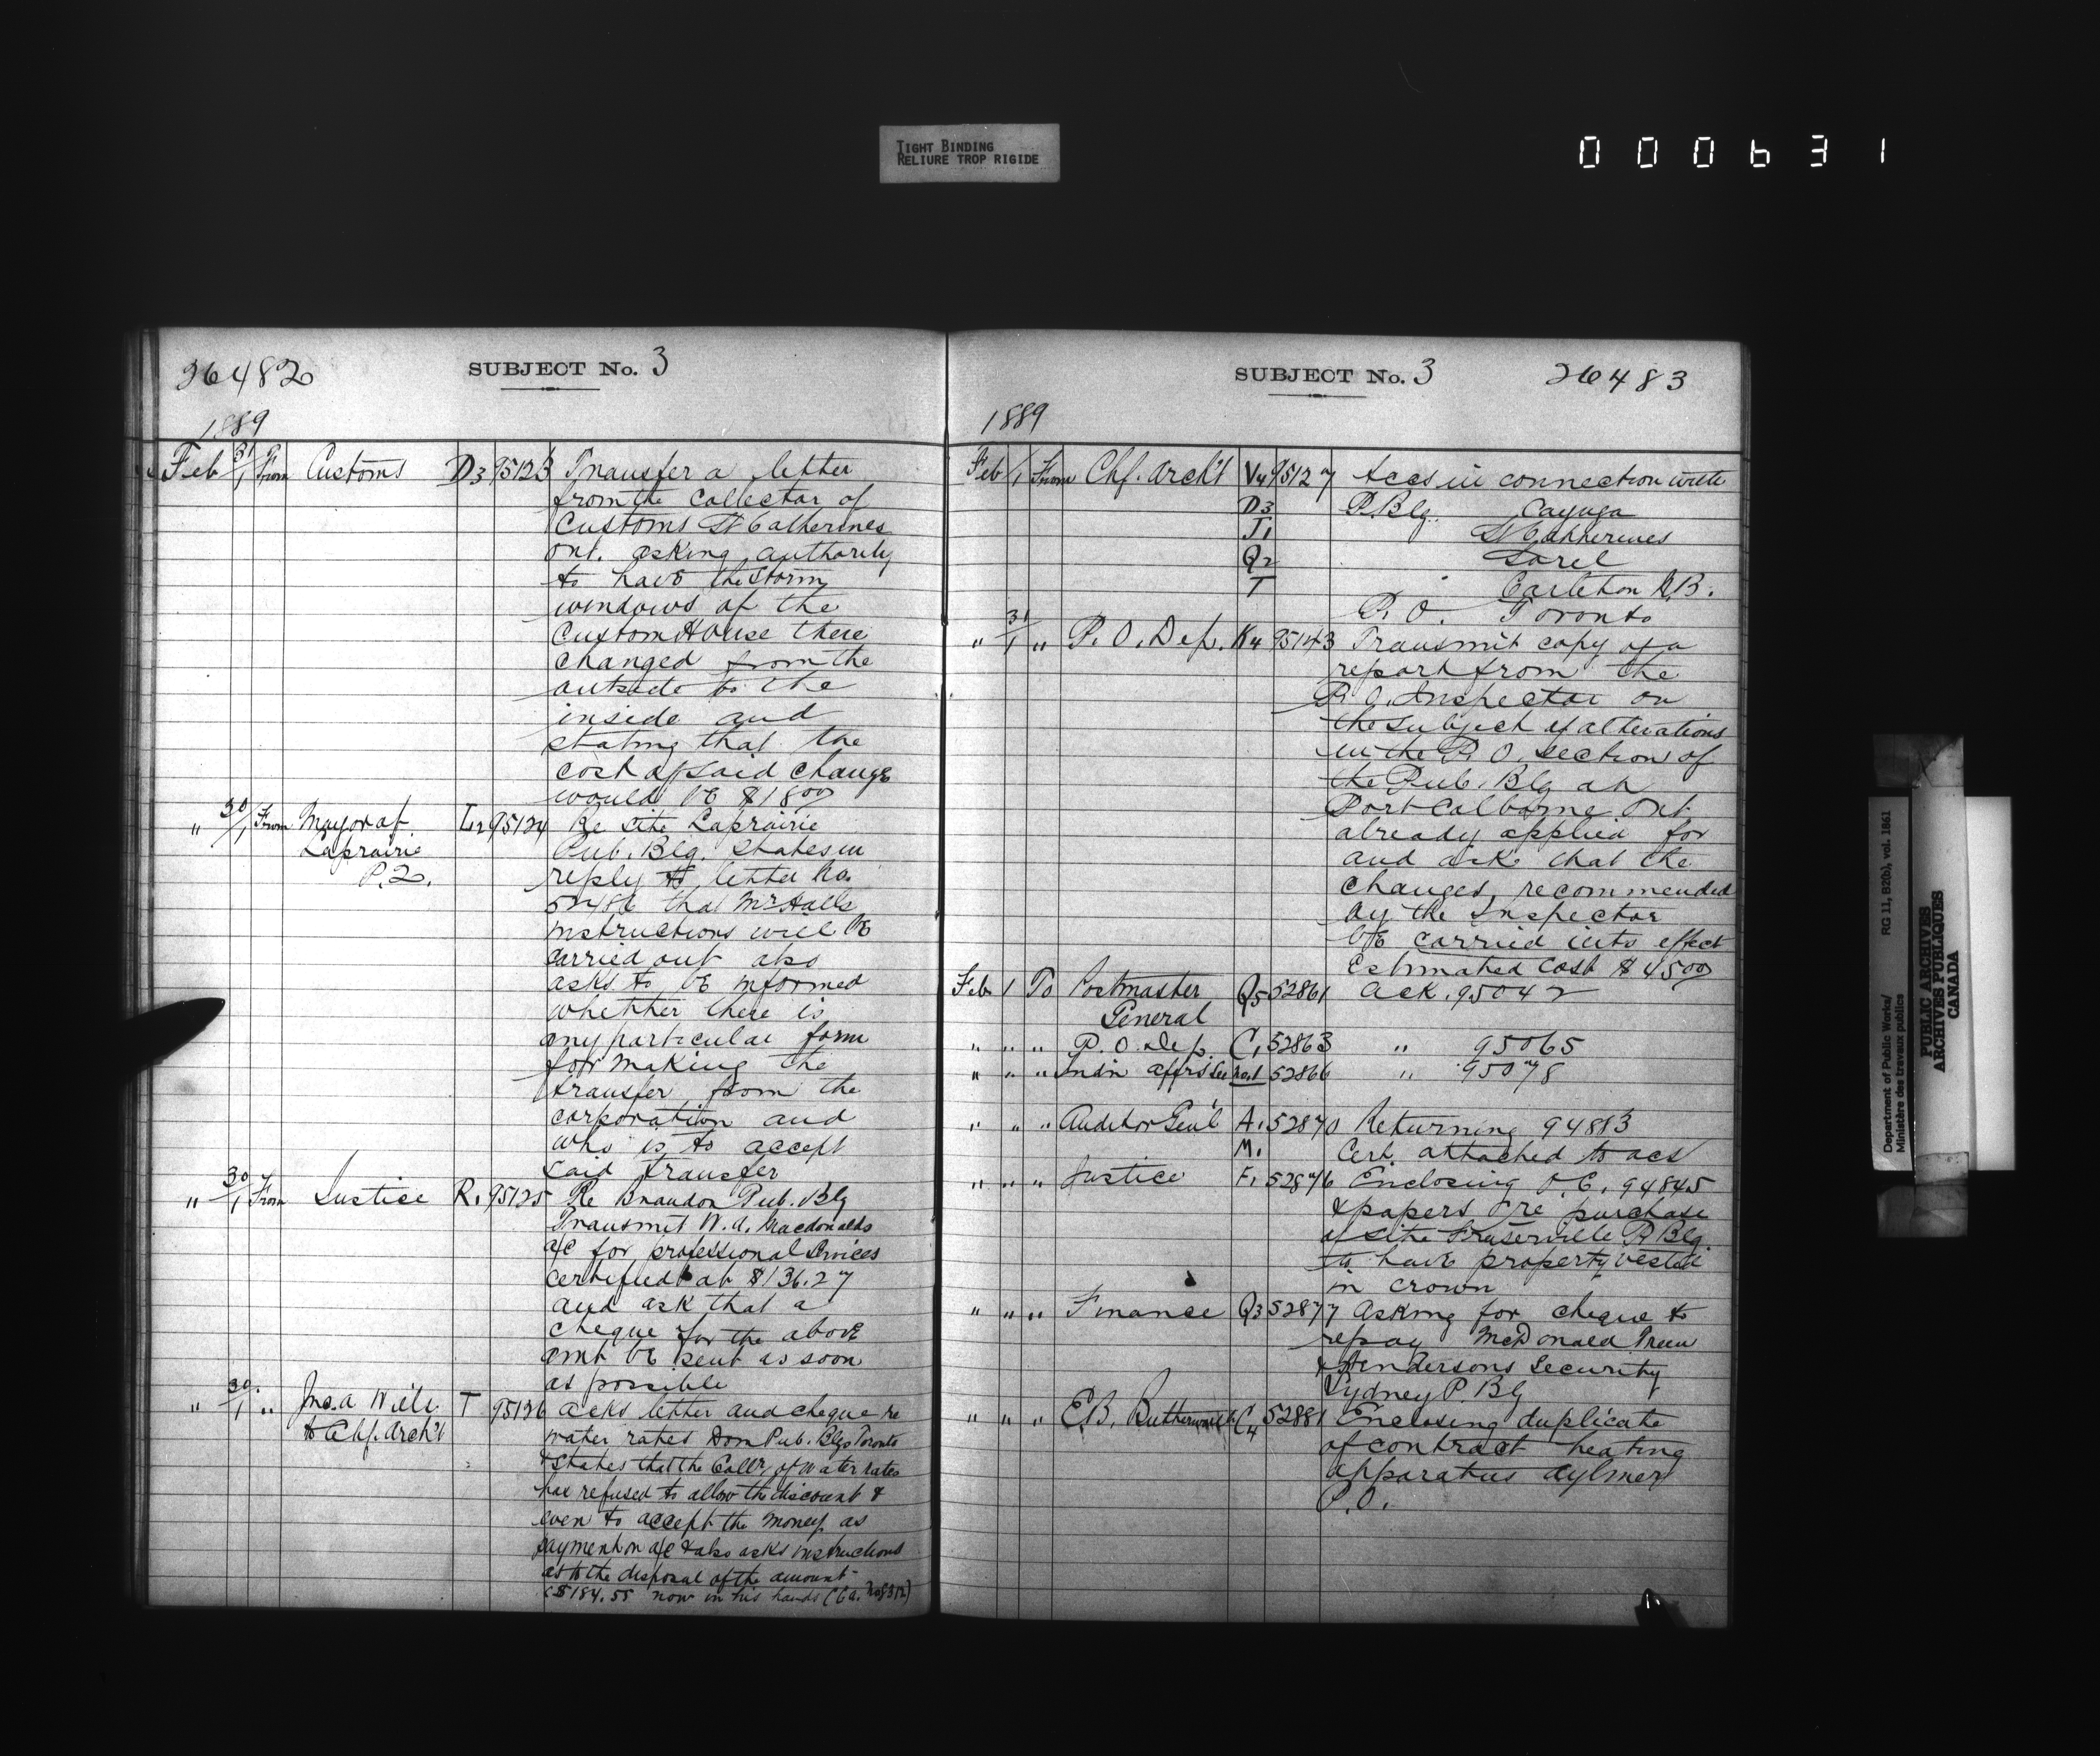 TIGHT BINDING
RELIURE TROP RIGIDE
000631
26482
SUBJECT No. 3
1889
Feb 31/1 From Customs D3 95123 Transfer a letter
from the Collector of
Customs St Catherines
Ont. asking authority
to have the storm
windows of the
Custom House there
changed from the
outside to the
inside and
stating that the
cost of said change
would be $18.00
" 30/1 From Mayor of L2 95124 Re site Laprairie
Laprairie Pub. Blg. states in
P.Q. reply to letter No.
that Mr Halls
instructions will be
carried out also
asks to be informed
whether there is
any particular form
for making the
transfer from the
corporation and
who is to accept
said transfer
" 30/1 From Justice R1 95125 Re Brandon Pub. Blg
Transmit W. A. Macdonalds
a/c for professional services
certified at $136.27
and ask that a
cheque for the above
amt be sent as soon
as possible
" 30/1 " Jno. A T 95126 asks letter and cheque re
to Chf. Arch't water rates Dom Pub. Blgs Toronto
& states that the Collr. of water rates
has refused to allow the discount &
even to accept the money as
payment on a/c & also asks instructions
as to the disposal of the amount
$184.55 now in his hands
SUBJECT No. 3
26483
1889
Feb 1/1 From Chf. Arch't V4 95127 accs in connection with
D3 P. Blg. Cayuga
J1 St Catherines
Q2 Sorel
T Carleton N.B.
P. O. Toronto
" 31/1 " P. O. Dep. K4 95143 Transmit copy of a
report from the
P.O. Inspector on
the subject of alterations
in the P. O. section of
the Pub. Blg at
Port Colborne Ont
already applied for
and ask that the
changes recommended
by the Inspector
be carried into effect
Estimated Cost $45.00
Feb 1 To Postmaster Q5 52861 ack. 95042
General
" " " P. O. Dep. C1 52863 " 95065
" " " Indn affrs 52866 " 95078
" " " Auditor Gen'l A1 52870 Returning 94883
M1 Cert. attached to acs
" " " Justice F1 52876 Enclosing O.C. 94845
& papers re purchase
of site Fraserville P Blg
to have property vested
in crown
" " " Finance Q3 52877 asking for cheque to
repay McDonald
& Hendersons Security
Sydney P. Blg
" " " E.B. C4 52881 Enclosing duplicate
of contract heating
apparatus Aylmer
P.O.
Department of Public Works/ RG 11, B2(b), vol. 1861
Ministère des travaux publics
PUBLIC ARCHIVES
ARCHIVES PUBLIQUES
CANADA